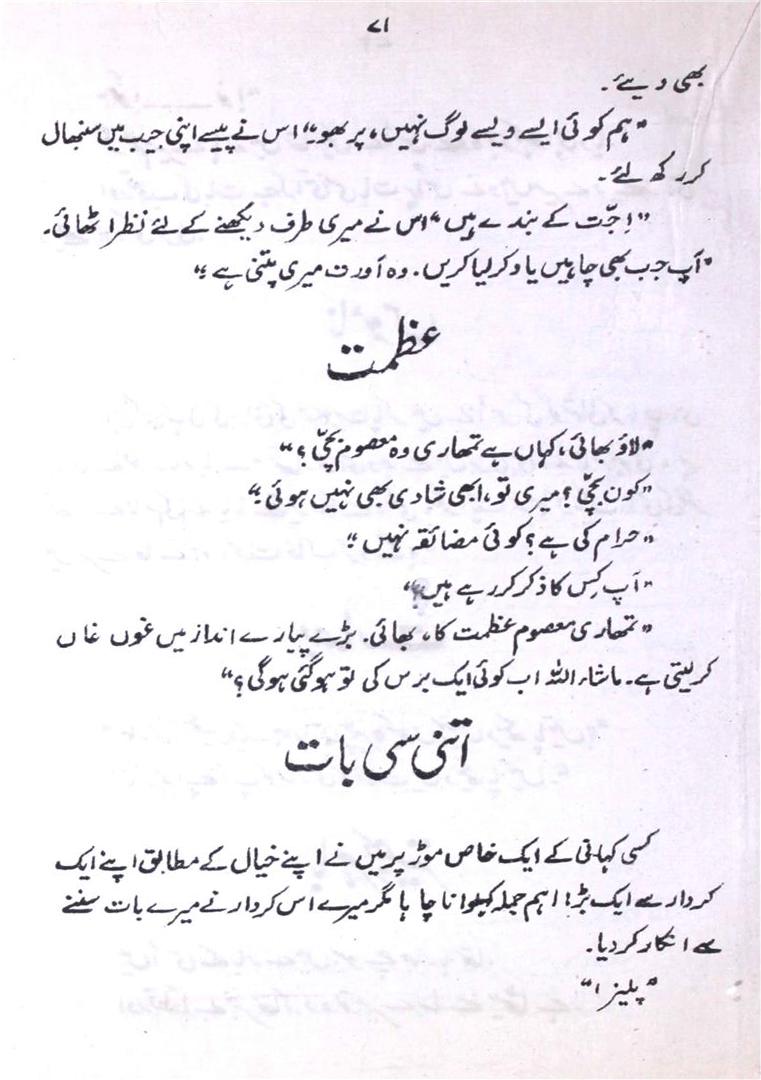 ۷۱
بھی دیئے۔
"ہم کوئی ایسے ویسے لوگ نہیں، پربھو۔" اس نے پیسے اپنی جیب میں سنبھال
کر رکھ لئے۔
"اجّت کے بندے ہیں" اس نے میری طرف دیکھنے کے لئے نظر اٹھائی۔
"آپ جب بھی چاہیں یاد کر لیا کریں۔ وہ آورت میری پتنی ہے۔"
عظمت
"لاؤ بھائی، کہاں ہے تمھاری وہ معصوم بچّی؟"
"کون بچّی؟ میری تو، ابھی شادی بھی نہیں ہوئی۔"
"حرام کی ہے؟ کوئی مضائقہ نہیں۔"
"آپ کِس کا ذکر کر رہے ہیں؟"
"تمھاری معصوم عظمت کا، بھائی۔ بڑے پیارے انداز میں غوں غاں
کر لیتی ہے۔ ماشاء اللہ اب کوئی ایک برس کی تو ہو گئی ہوگی؟"
اتنی سی بات
کسی کہانی کے ایک خاص موڑ پر میں نے اپنے خیال کے مطابق اپنے ایک
کردار سے ایک بڑا اہم جملہ کہلوانا چاہا مگر میرے اس کردار نے میرے بات سننے
سے انکار کر دیا۔
"پلیز!"